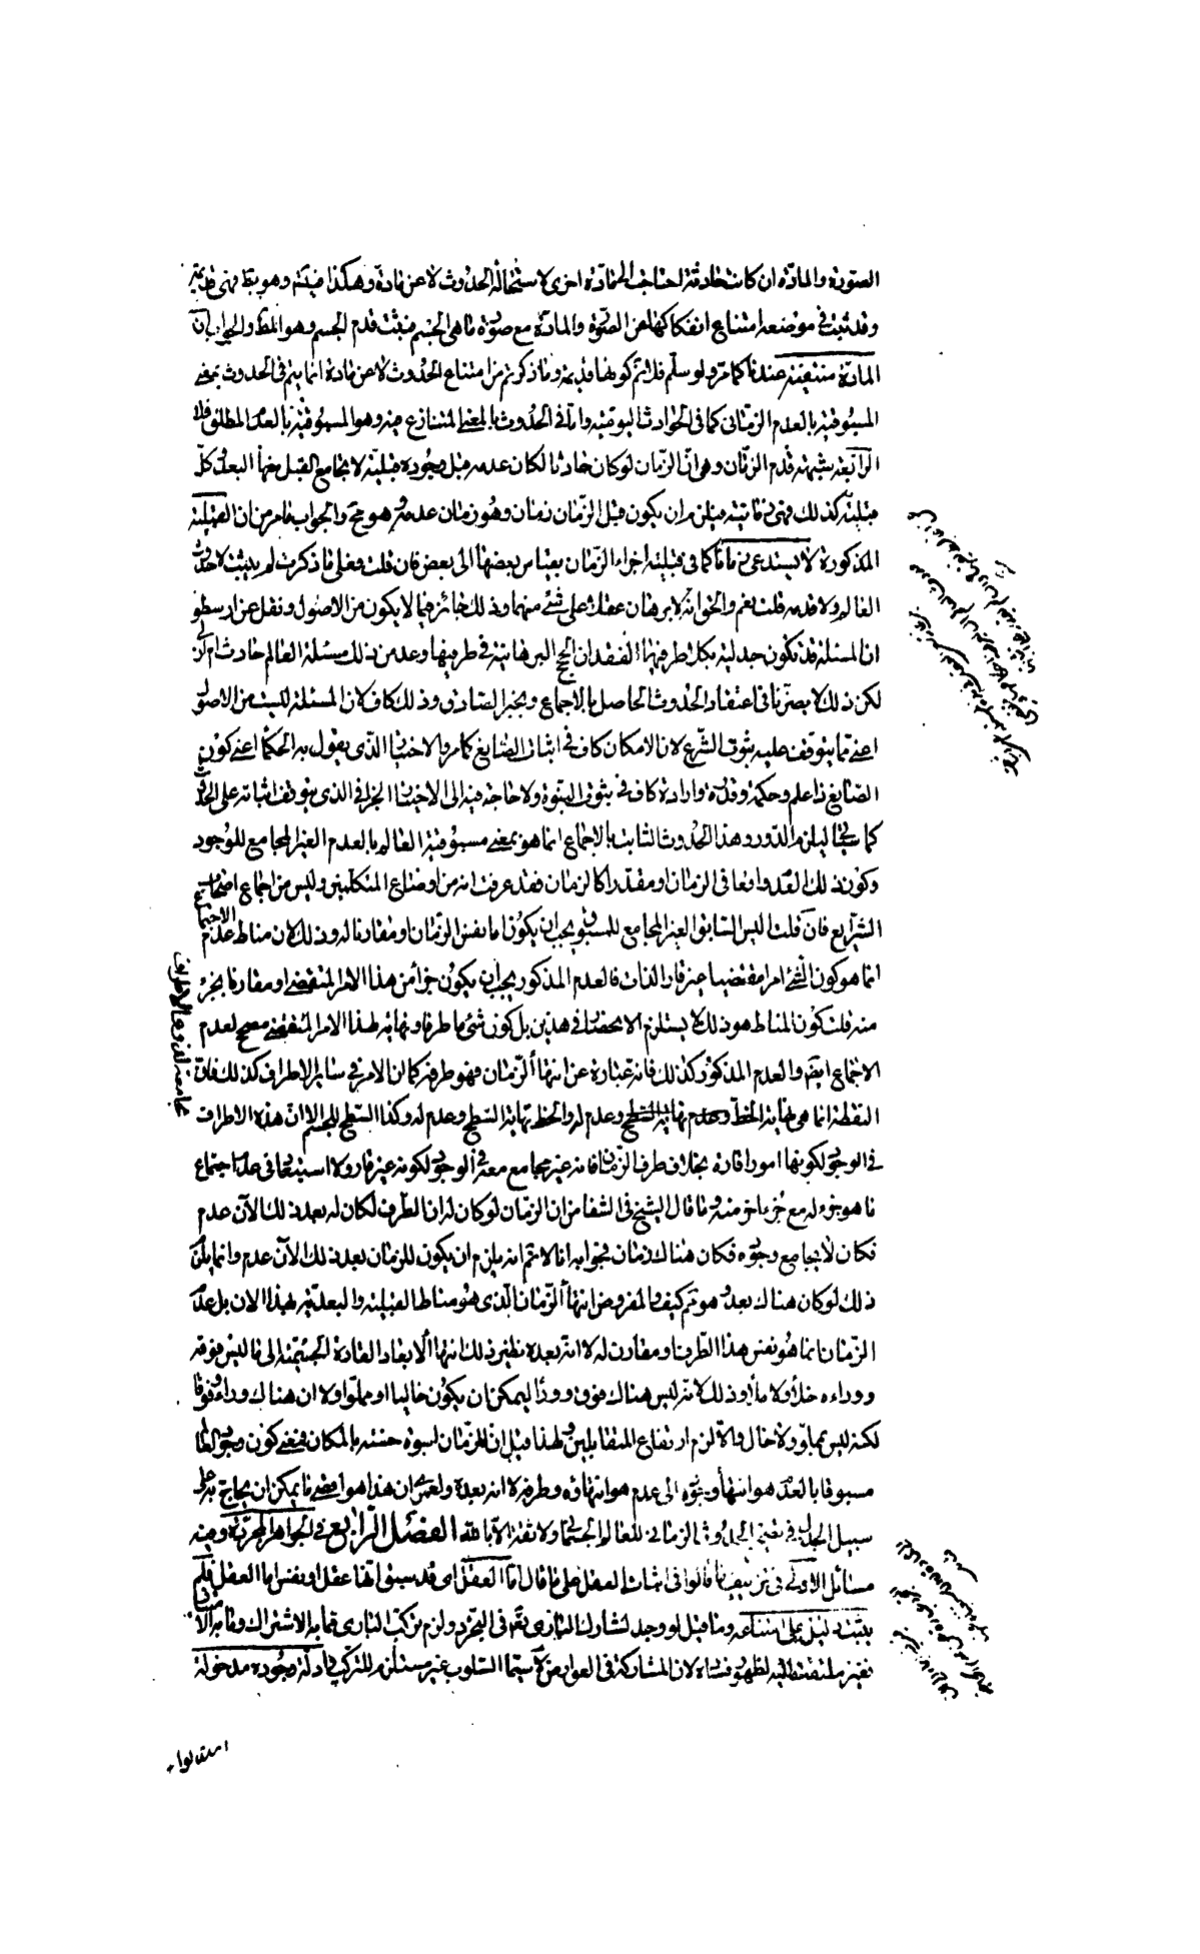 الصورة والمادة ان كانت حادثة احتاجت الى مادة اخرى لاستحالة الحدوث لا عن مادة وهكذا فيتم وهو بط فهى قديمة
وقد ثبت فى موضعه امتناع انفكاكها عن الصورة والمادة مع صورة ما هى الجسم فيثبت قدم الجسم وهو المط والجواب ان
المادة منتفية عندنا كما مر ولو سلم فلا نم كونها قديمة وما ذكرتم من امتناع الحدوث لا عن مادة انما يتم فى الحدوث بمعنى
المسبوقية بالعدم الزمانى كما فى الحوادث اليومية واما فى الحدوث بالمعنى المتنازع فيه وهو المسبوقية بالعدم المطلق فلا
الرابعة شبهة قدم الزمان وهى ان الزمان لو كان حادثا لكان عدمه قبل وجوده قبلية لا يجامع القبل فيها البعد وكل
قبلية كذلك فهى زمانية فيلزم ان يكون قبل الزمان زمان وهو زمان عدمه هو مح والجواب ما مر من ان القبلية
المذكورة لا يستدعى زمانا كما فى قبلية اجزاء الزمان بقياس بعضها الى بعض فان قلت فعلى ما ذكرت لم يثبت لا حدوث
العالم ولا قدمه قلت نعم والحق انه لا برهان عقلا على شئ منهما وذلك جائز فيما لا يكون من الاصول ونقل عن ارسطو
ان المسئلة قد تكون جدلية بكلا طرفيها لفقدان الحجج البرهانية فى طرفيها وعد من ذلك مسئلة العالم حادث ام ازلى
لكن ذلك لا يضرنا فى اعتقاد الحدوث الحاصل بالاجماع وبخبر الصادق وذلك كاف لان المسئلة ليست من الاصول
اعنى مما يتوقف عليه ثبوت الشرع لان الامكان كاف فى اثبات الصانع كما مر والاختيار الذى يقول به الحكماء اعنى كون
الصانع ذا علم وحكمة وقدرة وارادة كاف فى ثبوت النبوة ولا حاجة فيه الى الاختيار الجزافى الذى يتوقف اثباته على الحدوث
كما يجئ ليلزم الدور وهذا الحدوث الثابت بالاجماع انما هو بمعنى مسبوقية العالم بالعدم الغير المجامع للوجود
وكون ذلك العدم واقعا فى الزمان او مقدرا كالزمان فقد عرفت انه من اوضاع المتكلمين وليس من اجماع اصحاب
الشرايع فان قلت اليس السابق الغير المجامع للمسبوق يجب ان يكون اما نفس الزمان او مقارنا له وذلك لان مناط عدم الاجتماع
انما هو كون الشئ امرا مقتضيا غير قار الذات فالعدم المذكور يجب ان يكون جزأ من هذا الامر المتقضى او مقارنا بجزء
منه قلت كون المناط هو ذلك لا يستلزم الانحصار فى هذين بل كون شئ ما طرفا ونهاية لهذا الامر المتقضى مصحح لعدم
الاجتماع ايضا والعدم المذكور كذلك فانه عبارة عن انتهاء الزمان فهو طرفه كما ان الامر فى سائر الاطراف كذلك فان
النقطة انما هى نهاية الخط وعدم له والخط نهاية السطح وعدم له وكذا السطح للجسم الا ان هذه الاطراف
مجامعة لذى الاطراف
فى الوجود لكونها امورا قارة بخلاف طرف الزمان فانه غير مجامع معه فى الوجود لكونه غير قار ولا استبعاد فى عدم اجتماع
ما هو جزء له مع جزء اخر منه وما قال الشيخ فى الشفا من ان الزمان لو كان له ان الطرف لكان له بعد ذلك الآن عدم
فكان لا يجامع وجوده فكان هناك زمان فجوابه انا لا نم انه يلزم ان يكون للزمان بعد ذلك الآن عدم وانما يلزم
ذلك لو كان هناك بعد وهو مم كيف والمفروض انتهاء الزمان الذى هو مناط القبلية والبعدية لهذا الان بل عدم
الزمان انما هو نفس هذا الطرف او مقارن له لا انه بعده نظير ذلك انتهاء الابعاد القارة الجسمية الى ما ليس فوقه
ووراءه خلأ ولا ملأ وذلك لانه ليس هناك فوق ووراء ليمكن ان يكون خاليا او مملوا ولا ان هناك وراء وفوقا
لكنه ليس بمملو ولا خال والا لزم ارتفاع المتقابلين ولهذا قيل ان للزمان اسوة حسنة بالمكان فمعنى كون وجود العالم
مسبوقا بالعدم هو انتهاء وجوده الى عدم هو انتهاؤه وطرفه لا انه بعده ولعمرى ان هذا هو اقصى ما يمكن ان يحاج به على
سبيل الجدل فى تغيير الحدوث الزمانى للعالم الجسمانى ولا ثقة الا بالله الفصل الرابع فى الجواهر المجردة وفيه
مسائل الاولى فى تزييف ما قالوا فى اثبات العقل على ما قال اما العقل اى قد سبق انها عقل او نفس اما العقل فلم
يثبت دليل على امتناعه وما قيل لو وجد لشارك البارى تعالى فى التجرد ولزم تركب البارى مما به الاشتراك وما به الامتياز
غير ملتفت اليه لظهور فساده لان المشاركة فى العوارض لا سيما السلوب غير مستلزم للتركيب وادلة وجوده مدخولة
استدلوا